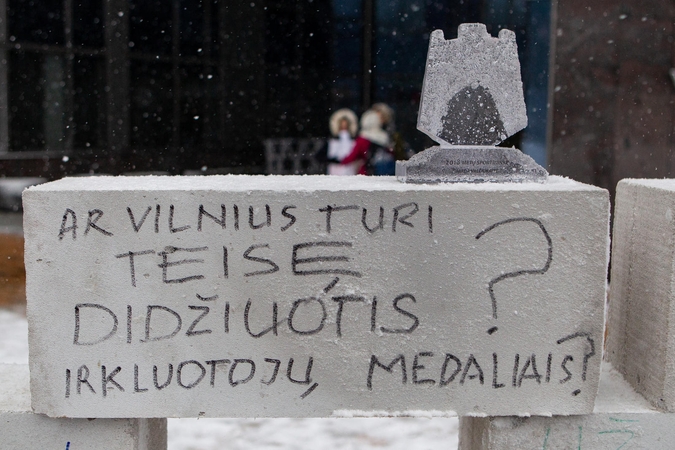 AR VILNIUS TURI
TEISĘ
DIDŽIUOTIS ?
IRKLUOTOJŲ MEDALIAIS?